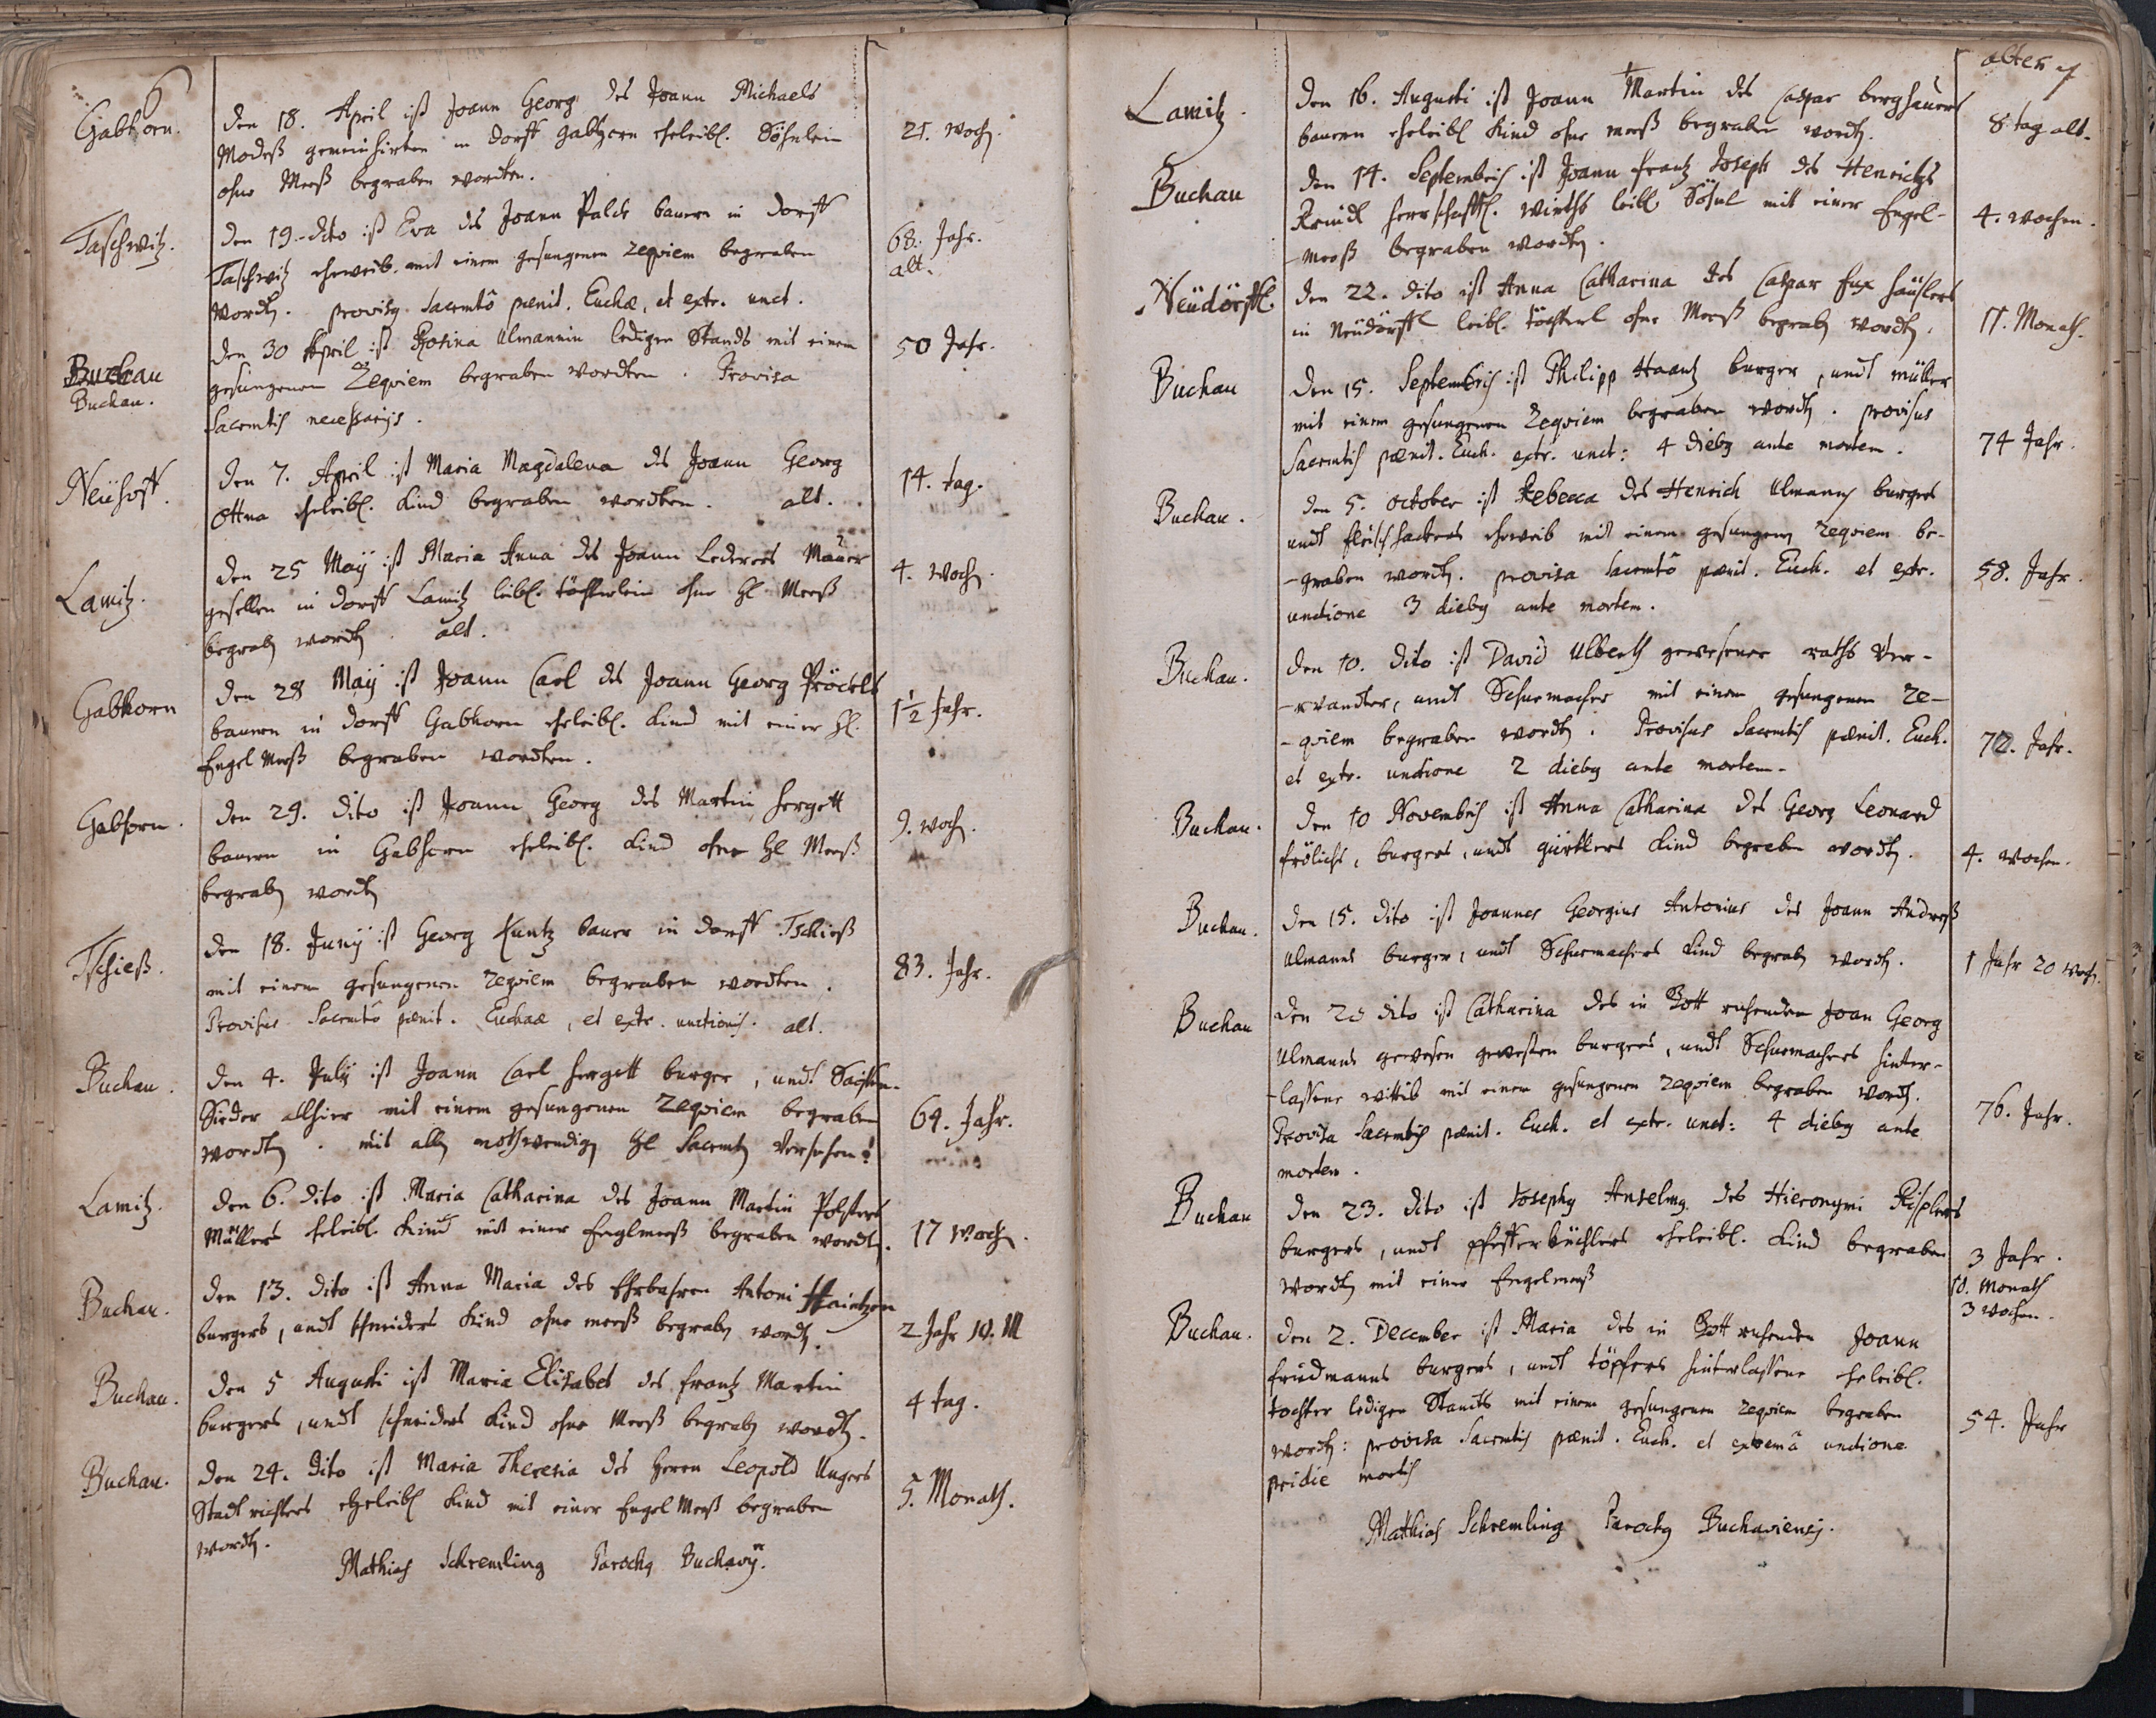 Gabhorn.
den 18. April ist Joann Georg des Joann Michaels
Modeß gemeinhirten in dorff gabhorn eheleibl. Söhnlein
ohne Meeß begraben wordten.
21. woch.
Taschwitz.
den 19. dito ist Eva des Joann Palds bauern in dorff
Taschwitz eheweib. mit einem gesungenen requiem begraben
wordten. provisa Sacmtô pænit. Euchæ, et extr. unct.
68. Jahr.
alt.
Buchau
Buchau.
den 30 April ist Rosina Ulmannin ledigen Stands mit einem
gesungenen Requiem begraben wordten. Provisa
Sacmtis necessarijs.
50 Jahr.
Neühoff.
den 7. April ist Maria Magdalena des Joann Georg
Ottna eheleibl. Kind begraben wordten. alt.
14. tag.
Lamitz.
den 25 Maÿ ist Maria Anna des Joann Lederers Maurer
gesellen in dorff Lamitz leibl. töchterlein ohne hl Meeß
begraben wordten. alt.
4. Woch.
Gabhorn
den 28 Maÿ ist Joann Carl des Joann Georg Pröckels
bauern in dorff Gabhorn eheleibl. Kind mit einer hl.
Engel Meeß begraben wordten.
1 1/2 Jahr.
Gabhorn.
den 29. dito ist Joann Georg des Martin hergett
bauern in Gabhorn eheleibl. Kind ohne hl Meeß
begraben wordten
9. woch.
Tschieß.
den 18. Junÿ ist Georg Kuntz bauer in dorff Tschieß
mit einem gesungenen requiem begraben wordten.
Provisus Sacmtô pænit. Euchaæ, et extr. unctionis. alt.
83. Jahr.
Buchau.
den 4. Julij ist Joann Carl hergett burger, undt Saiffen-
Sieder allhier mit einem gesungenen Requiem begraben
wordten. mit allen nothwendigen hl Sacmten Versehen.
64. Jahr.
Lamitz.
den 6. dito ist Maria Catharina des Joann Martin Polsters
Müllers eheleibl. Kind mit einer Englmeeß begraben wordten.
17 Woch.
Buchau.
den 13. dito ist Anna Maria des Ehrbahren Antoni Haintzen
burgers, undt schneiders Kind ohne meeß begraben wordten.
2 Jahr 10. M
Buchau.
den 5 Augusti ist Maria Elisabet des frantz Martin
burgers, undt schneiders Kind ohne Meeß begraben wordten.
4 tag.
Buchau.
den 24. dito ist Maria Theresia des herrn Leopold Ungers
Stadt richters eheleibl Kind mit einer Engel Meeß begraben
wordten.
5. Monath.
Mathias Schremling Parochus Buchavij.
alter
Lamitz.
den 16. Augusti ist Joann Martin des Caspar berghauers
bauern eheleibl Kind ohne meeß begraben wordten.
8. tag alt.
Buchau
den 14. Septembris ist Joann frantz Joseph des Henrichs
Reindl herrschafftl. wirths leibl. Söhnl mit einer Engel-
-meeß begraben wordten.
4. wochen.
Neüdörffl.
den 22. dito ist Anna Catharina des Caspar fux häußlers
in Neüdörffl leibl. töchterl ohne Meeß begraben wordten.
11. Monath.
Buchau
den 15. Septembris ist Philipp Haantz burger, undt müller
mit einem gesungenen Requiem begraben wordten. provisus
Sacmtis pænit. Euch. extr. unct: 4 diebus ante mortem.
74 Jahr.
Buchau.
den 5. october ist Rebecca des Henrich Ulmanns burgers
undt fleischhackers eheweib mit einem gesungenen requiem be-
-graben wordten. provisa Sacmtô pænit. Euch. et extr.
unctione 3 diebus ante mortem.
58. Jahr.
Buchau.
den 10. dito ist David Ulberth gewesener raths Ver-
-wandter, undt Schumacher mit einem gesungenen re-
-quiem begraben wordten. Provisus Sacmtis pænit. Euch.
et extr. unctione 2 diebus ante mortem.
72. Jahr.
Buchau.
den 10 Novembris ist Anna Catharina des Georg Leonard
frölichs, burgers, undt gürtlers Kind begraben wordten.
4. wochen.
Buchau.
den 15. dito ist Joannes Georgius Antonius des Joann Andreß
Ulmanns burger, undt Schumachers Kind begraben wordten.
1 Jahr 20 Woch.
Buchau
den 20 dito ist Catharina des in Gott ruhenden Joan Georg
Ulmanns gewesen gewesten burgers, undt Schumachers hinter-
-lassene wittib mit einem gesungenen requiem begraben wordten.
Provisa Sacmtis pænit. Euch. et extr. unct: 4 diebus ante
mortem.
76. Jahr.
Buchau
den 23. dito ist Josephus Anselmus des Hieronymi Risplers
burgers, undt pfefferküchlers eheleibl. Kind begraben
wordten mit einer Engelmeeß
3 Jahr.
10. Monath
3 Wochen.
Buchau.
den 2. December ist Maria des in Gott ruhenden Joann
friedmanns burgers, undt töpfers hinterlassene eheleibl.
tochter ledigen Standts mit einem gesungenen requiem begraben
wordten: provisa Sacmtis pænit. Euch. et extremâ unctione
pridie mortis
54. Jahr
Matthias Schremling Parochus Buchaviensis.